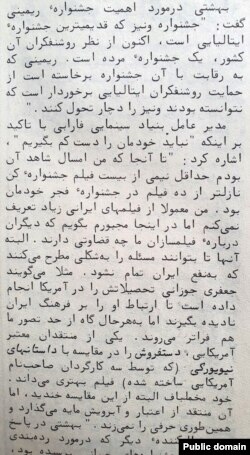 بهشتی درمورد اهمیت جشنواره ٔ ریمینی
گفت: "جشنواره ونیز که قدیمیترین جشنواره ٔ
ایتالیایی است، اکنون از نظر روشنفکران آن
کشور، یک جشنواره ٔ مرده است. ریمینی که
به رقابت با آن جشنواره برخاسته است از
حمایت روشنفکران ایتالیایی برخوردار است که
نتوانسته بودند ونیز را دچار تحول کنند."
مدیر عامل بنیاد سینمایی فارابی با تاکید
بر اینکه "نباید خودمان را دست کم بگیریم"،
اشاره کرد: "تا آنجا که من امسال شاهد آن
بودم حداقل نیمی از بیست فیلم جشنواره ٔ کن
نازلتر از ده فیلم در جشنواره ٔ فجر خودمان
بود. من معمولا از فیلمهای ایرانی زیاد تعریف
نمی‌کنم اما در اینجا مجبورم بگویم که دیگران
درباره ٔ فیلمسازان ما چه قضاوتی دارند. البته
آنها تا بتوانند مسئله را به‌شکلی مطرح می‌کنند
که به‌نفع ایران تمام نشود. مثلا می‌گویند
جعفری جوزانی تحصیلاتش را در آمریکا انجام
داده است تا ارتباط او را بر فرهنگ ایران
نادیده بگیرند اما به‌هرحال گاه از حد تصور ما
هم فراتر می‌روند. یکی از منتقدان معتبر
آمریکایی، دستفروش را در مقایسه با داستانهای
نیویورکی (که توسط سه کارگردان صاحب‌نام
آمریکایی ساخته شده) فیلم بهتری می‌داند.
خود مخملباف البته از این مقایسه خندید، اما
آن منتقد از اعتبار و آبرویش مایه می‌گذارد و
همین‌طوری حرفی را نمی‌زند." بهشتی در پاسخ
دیگر که درمورد رده‌بندی